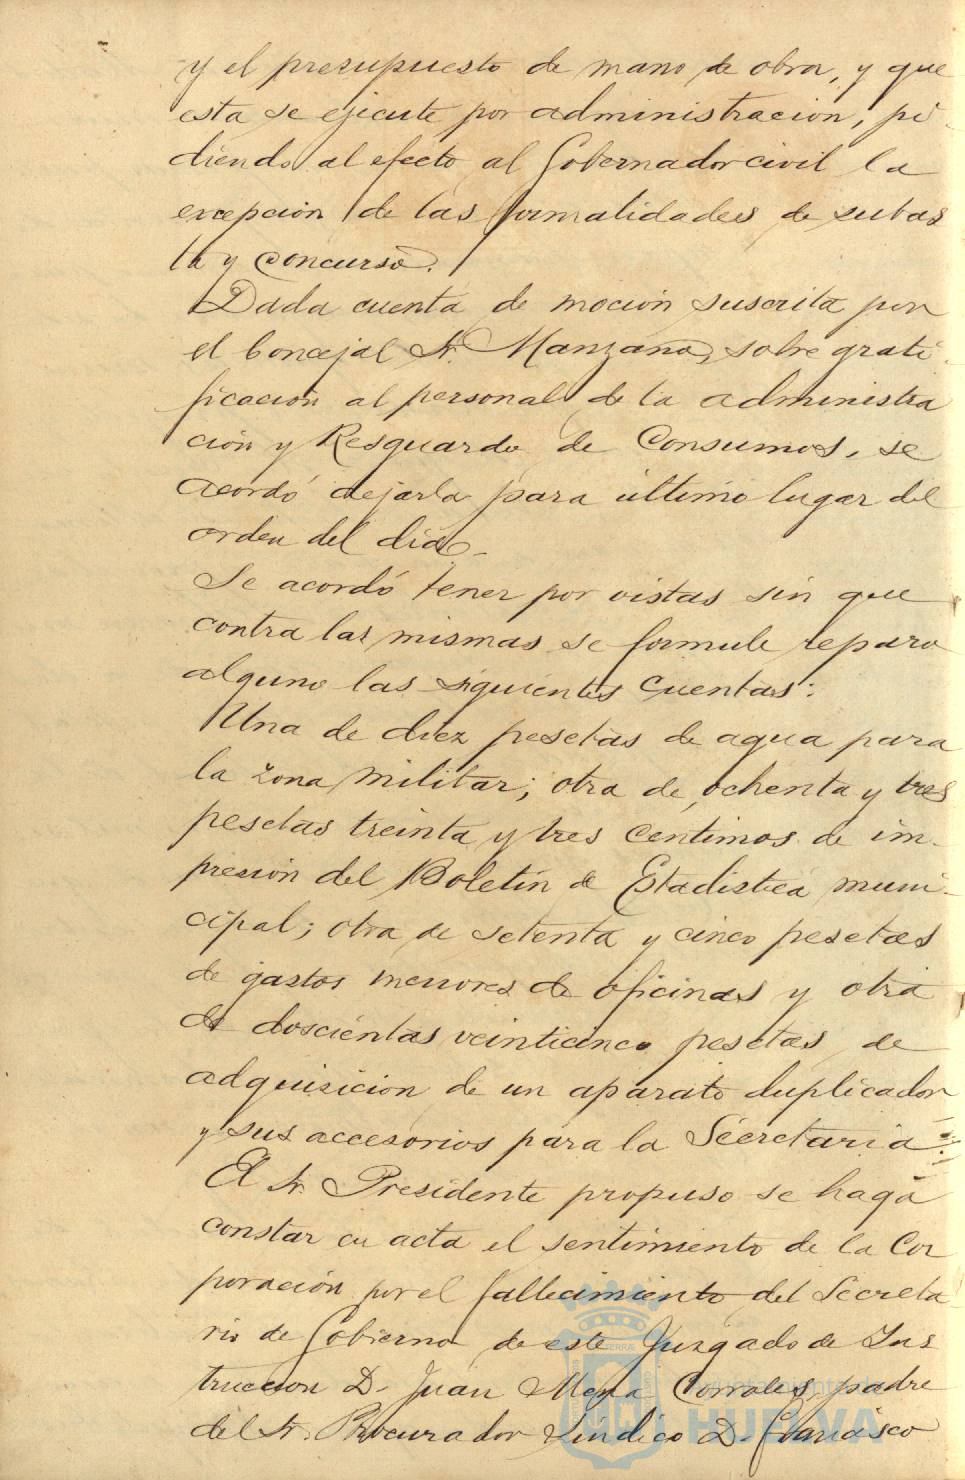 y el presupuesto de mano de obra, y que
esta se ejecute por administracion, pi-
diendo al efecto al Gobernador civil la
excepción de las formalidades de subas
ta y concurso.
Dada cuenta de moción suscrita por
el Concejal Sr. Manzano, sobre grati-
ficación al personal de la administra
ción y Resguardo de Consumos, se
acordó dejarla para último lugar del
orden del día.
Se acordó tener por vistas sin que
contra las mismas se formule reparo
alguno las siguientes cuentas:
Una de diez pesetas de agua para
la zona militar; otra de ochenta y tres
pesetas treinta y tres centimos de im-
presión del Boletín de Estadistica muni-
cipal; otra de setenta y cinco pesetas
de gastos menores de oficinas y otra
de doscientas veinticinco pesetas de
adquisicion de un aparato duplicador
y sus accesorios para la Secretaria.
El Sr. Presidente propuso se haga
constar en acta el sentimiento de la Cor
poración por el fallecimiento del Secreta-
rio de Gobierno de este Juzgado de Ins
truccion D. Juan Corrales, padre
del Sr. Procurador Síndico D. Francisco
Ayuntamiento de
HUELVA